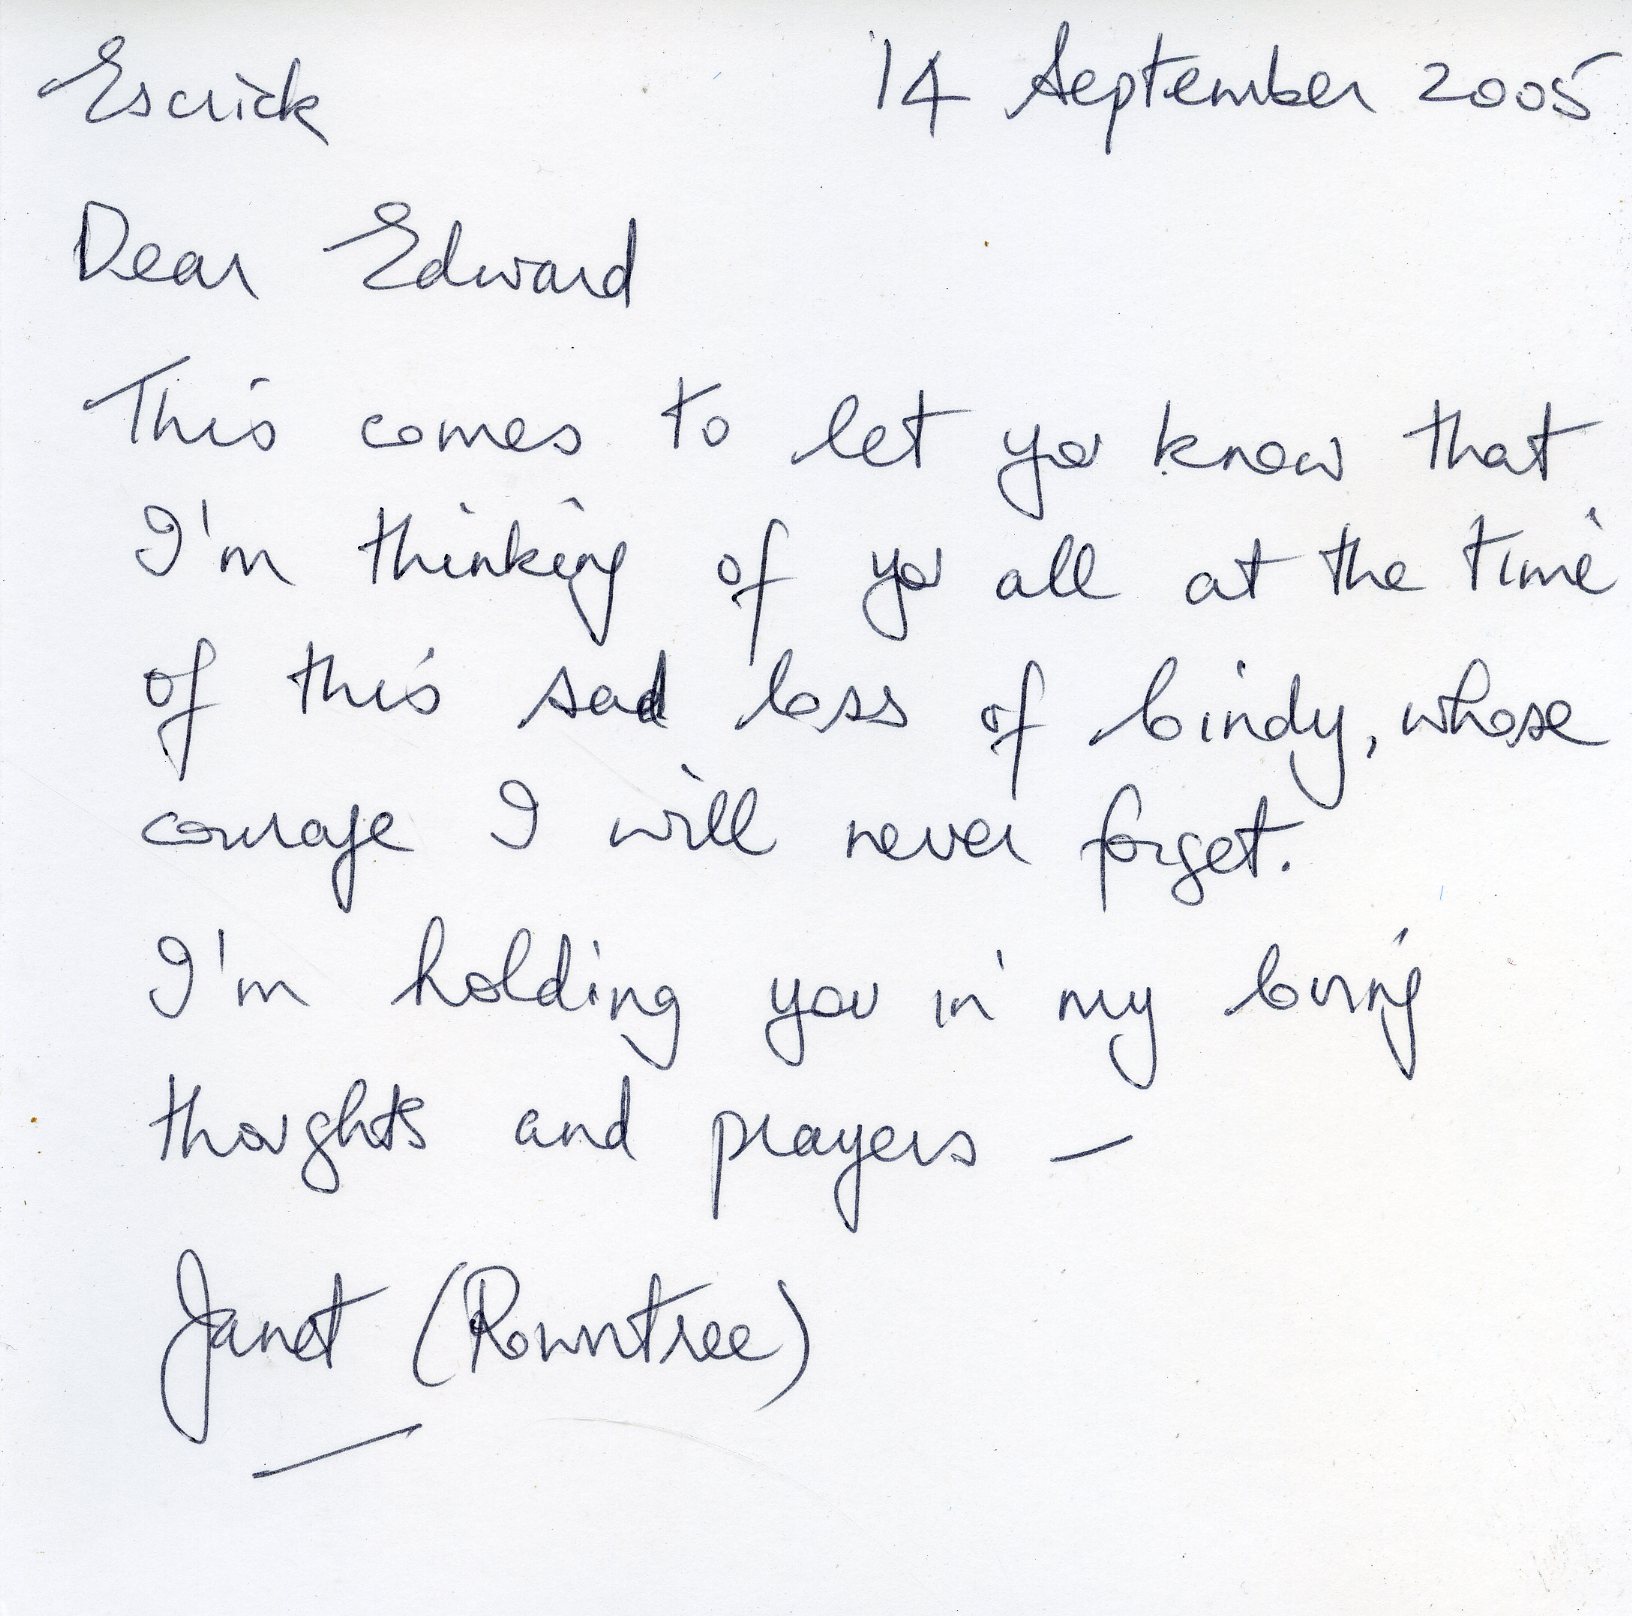 Escrick 14 September 2005
Dear Edward
This comes to let you know that
I'm thinking of you all at the time
of this sad loss of , whose
courage I will never forget.
I'm holding you in my loving
thoughts and prayers –
Janet (Rowntree)